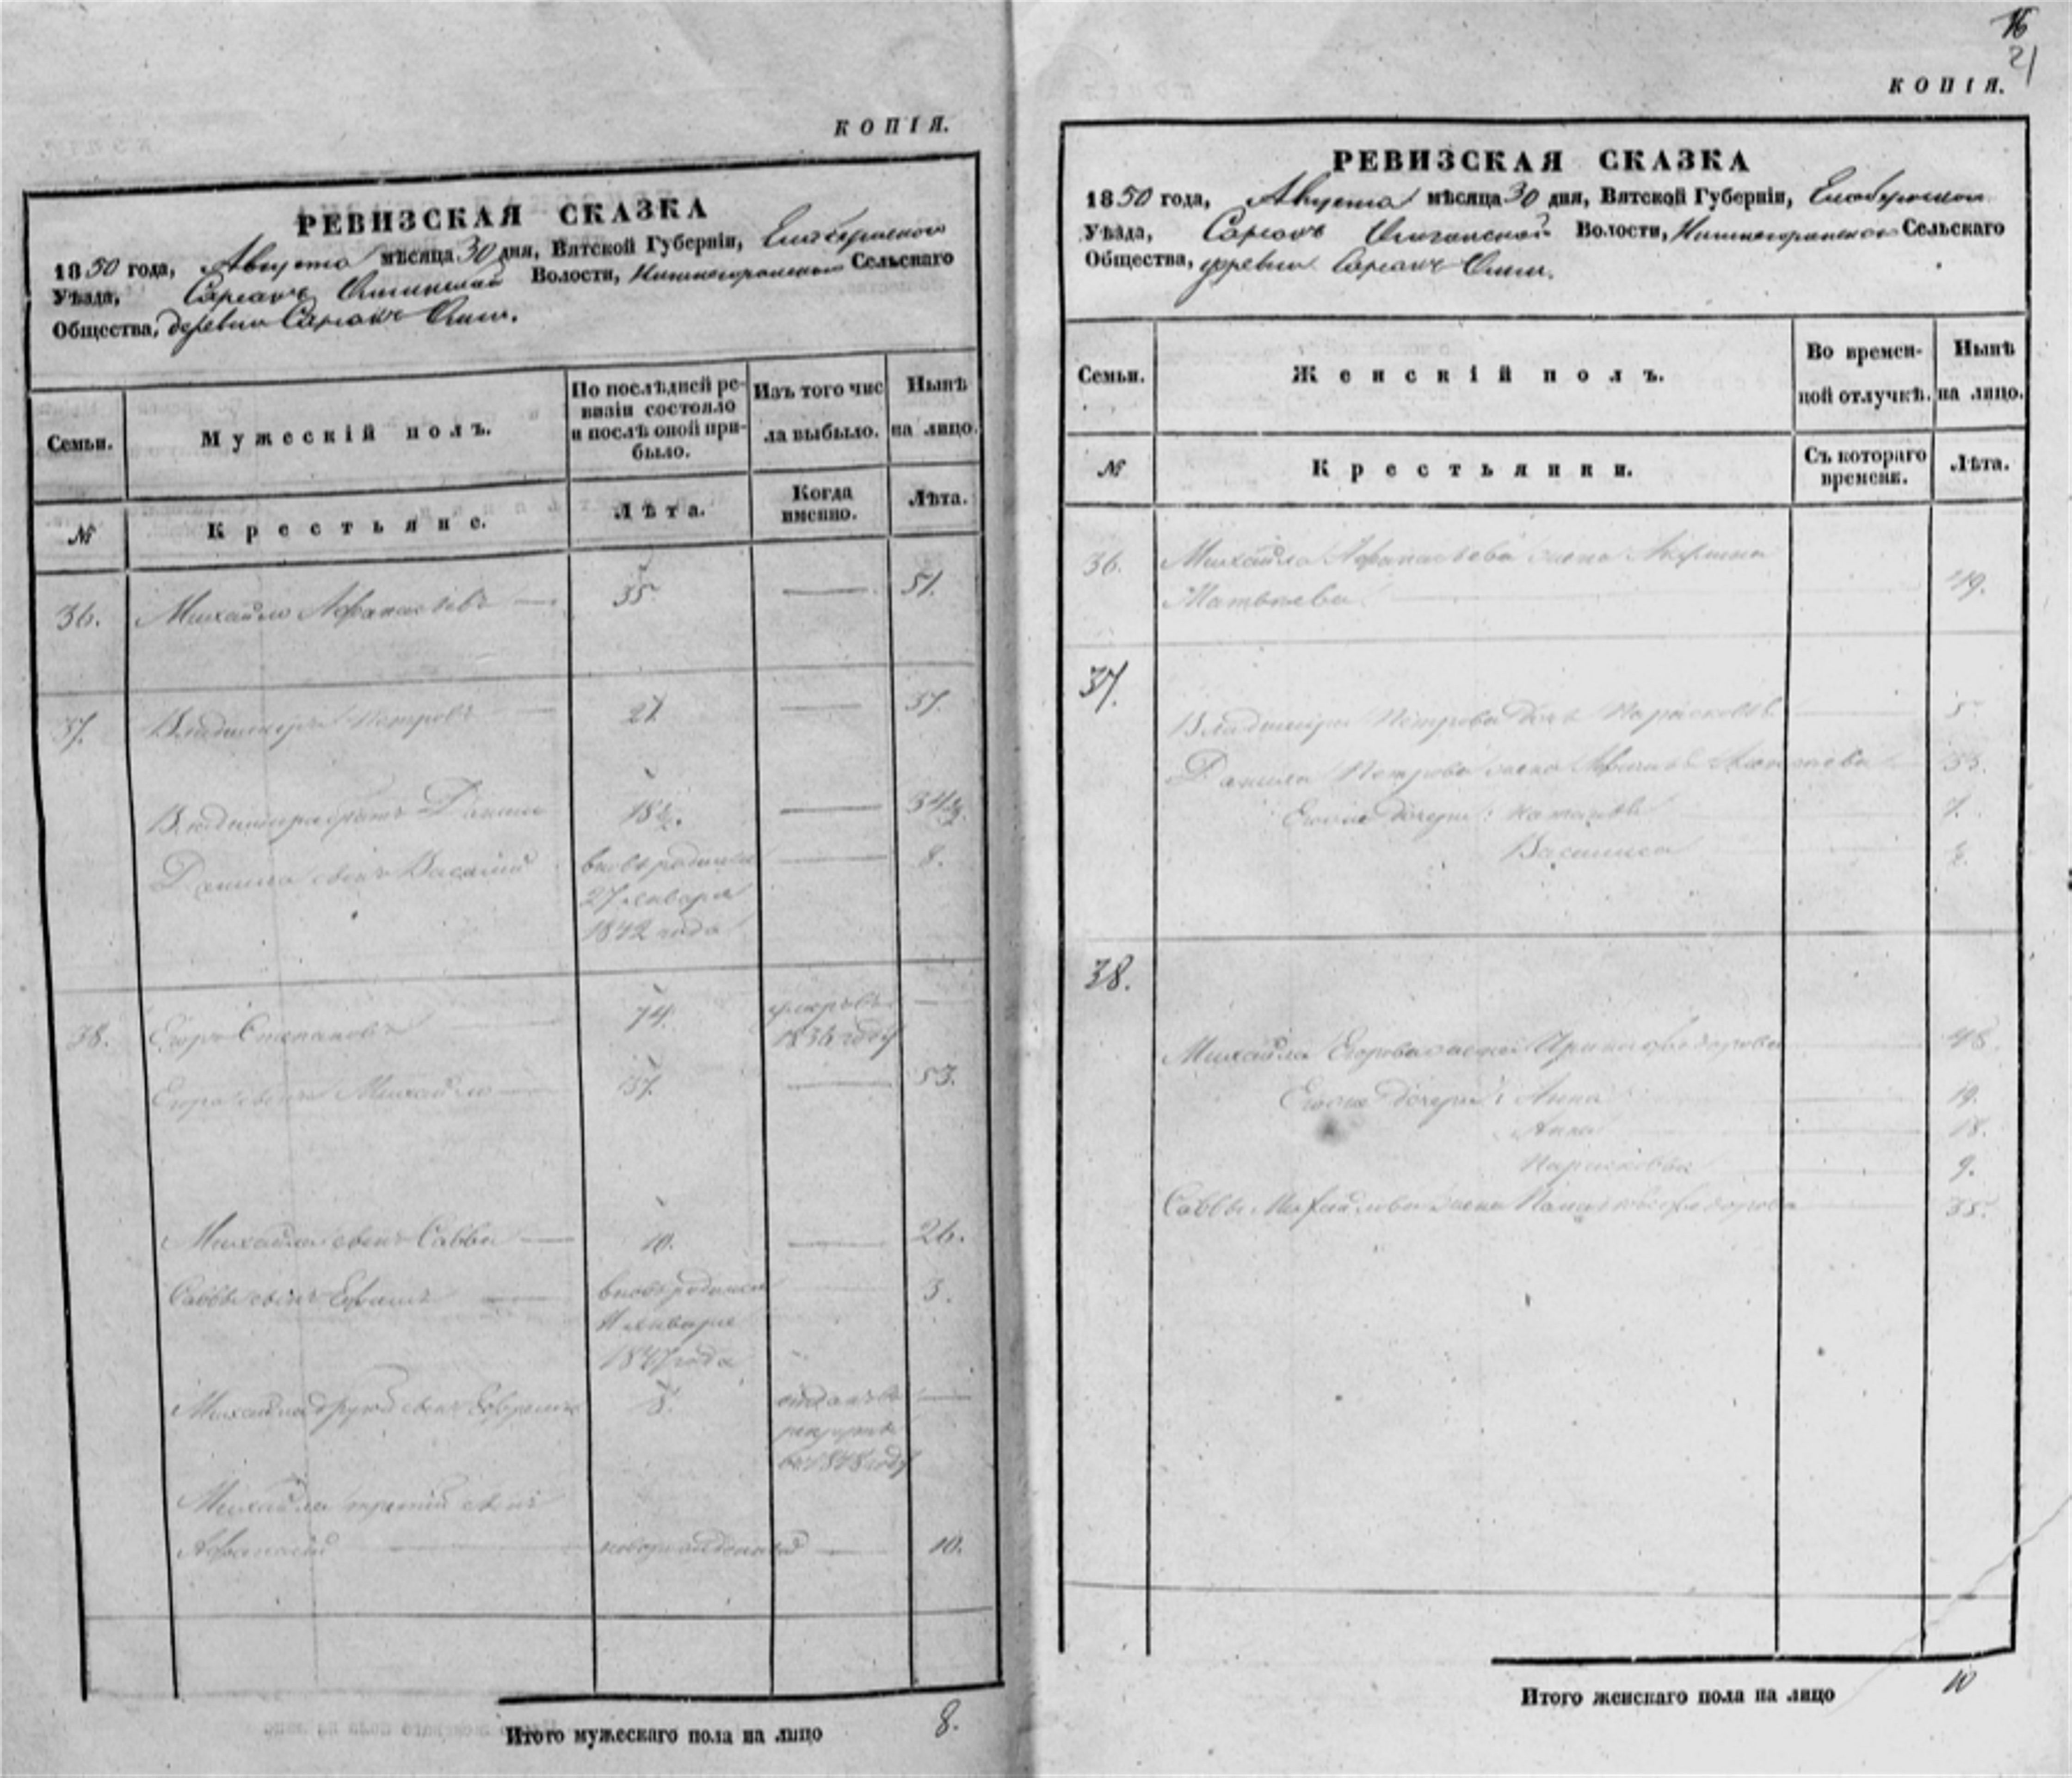 КОПІЯ.
РЕВИЗСКАЯ СКАЗКА
1850 года, Августа мѣсяца 30 дня, Вятской Губерніи, Елабужскаго
Уѣзда, Сарсакъ Омгинской Волости, Сельскаго
Общества, деревни Сарсакъ Омги.
Семьи.
Мужескій полъ.
По послѣдней ре-
визіи состояло
и послѣ оной при-
было.
Изъ того чис
ла выбыло.
Нынѣ
на лицо.
№
Крестьяне.
Лѣта.
Когда
именно.
Лѣта.
36. Михайло Афанасьевъ — 35. — 51.
37. Владимиръ Петровъ — 21. — 37.
Владимира братъ Данило 18½. — 34½.
Данила сынъ Василій вновь родился — 8.
27 января
1842 года
38. Егоръ Степановъ 74. умеръ въ —
1836 году
Егора сынъ Михайло — 37. — 53.
Михайла сынъ Савва — 10. — 26.
Саввы сынъ Ефимъ — вновь родился 3.
11 января
1847 года
Михайла другой сынъ 8. отданъ въ —
рекруты
въ 1848 году
Михайла третій сынъ
Афанасій — новорожденный — 10.
Итого мужескаго пола на лицо 8.
16
21
КОПІЯ.
РЕВИЗСКАЯ СКАЗКА
1850 года, Августа мѣсяца 30 дня, Вятской Губерніи, Елабужскаго
Уѣзда, Сарсакъ Омгинской Волости, Сельскаго
Общества, деревни Сарсакъ Омги.
Семьи.
Женскій полъ.
Во времен-
ной отлучкѣ.
Нынѣ
на лицо.
№
Крестьянки.
Съ котораго
времени.
Лѣта.
36. Михайла Афанасьева жена Акулина
Матвѣева — 49.
37.
Владимира Петрова дочь Парасковья — 5.
Данила Петрова жена — 33.
Его же дочери: Наталья 7.
Василиса ½.
38.
Михайла Егорова жена Ирина Федорова — 48.
Его же дочери: Анна 19.
Анна 18.
Парасковья 9.
Саввы Михайлова жена Федорова — 35.
Итого женскаго пола на лицо 10